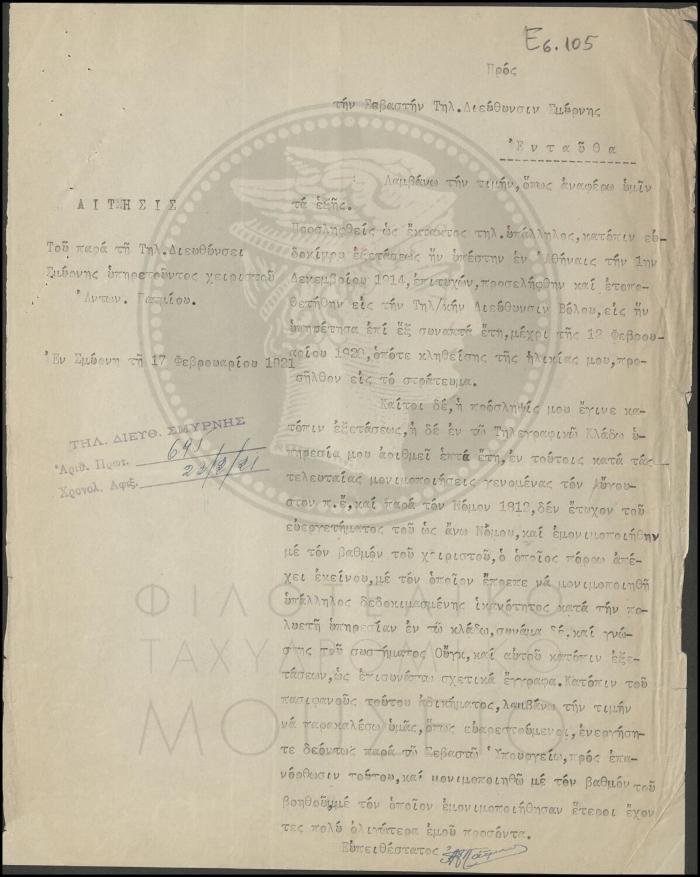 Ε6.105
Πρός
τήν Σεβαστήν Τηλ.Διεύθυνσιν Σμύρνης
Ἐνταῦθα
ΑΙΤΗΣΙΣ
Τοῦ παρά τῇ Τηλ.Διευθύνσει
Σμύρνης ὑπηρετοῦντος χειριστοῦ
Ἀντων.
Ἐν Σμύρνῃ τῇ 17 Φεβρουαρίου 1921
ΤΗΛ. ΔΙΕΥΘ. ΣΜΥΡΝΗΣ
Ἀριθ. Πρωτ. 691
Χρονολ. Ἀφιξ. 22/2/21
Λαμβάνω τήν τιμήν,ὅπως ἀναφέρω ὑμῖν
τά ἑξῆς.
Προσληφθείς ὡς ἔκτακτος τηλ.ὑπάλληλος,κατόπιν εὐ-
δοκίμου ἐξετάσεως ἥν ὑπέστην ἐν Ἀθήναις τήν 1ην
Δεκεμβρίου 1914,ἐπιτυχών,προσελήφθην καί ἐτοπο-
θετήθην εἰς τήν Τηλ/κήν Διεύθυνσιν Βόλου,εἰς ἥν
ὑπηρέτησα ἐπί ἕξ συναπτά ἔτη,μέχρι τῆς 12 Φεβρου-
αρίου 1920,ὁπότε κληθείσης τῆς ἡλικίας μου,προ-
σῆλθον εἰς τό στράτευμα.
Καίτοι δέ,ἡ πρόσληψίς μου ἔγινε κα-
τόπιν ἐξετάσεως,ἡ δέ ἐν τῷ Τηλεγραφικῷ Κλάδῳ ὑ-
πηρεσία μου ἀριθμεῖ ἑπτά ἔτη,ἐν τούτοις κατά τάς
τελευταίας μονιμοποιήσεις γενομένας τόν Αὔγου-
στον π.ἔ,καί παρά τόν Νόμον 1812,δέν ἔτυχον τοῦ
εὐεργετήματος τοῦ ὡς ἄνω Νόμου,καί ἐμονιμοποιήθην
μέ τόν βαθμόν τοῦ χειριστοῦ,ὁ ὁποῖος πόρρω ἀπέ-
χει ἐκείνου,μέ τόν ὁποῖον ἔπρεπε νά μονιμοποιηθῇ
ὑπάλληλος δεδοκιμασμένης ἱκανότητος κατά τήν πο-
λυετῆ ὑπηρεσίαν ἐν τῷ κλάδῳ,συνάμα δέ καί γνώ-
στης τοῦ συστήματος Οὔγκ,καί αὐτοῦ κατόπιν ἐξε-
τάσεων,ὡς ἐπισυνάπτω σχετικά ἔγγραφα.Κατόπιν τοῦ
πασιφανοῦς τούτου ἀδικήματος,λαμβάνω τήν τιμήν
νά παρακαλέσω ὑμᾶς,ὅπως εὐαρεστούμενοι,ἐνεργήση-
τε δεόντως παρά τῷ Σεβαστῷ Ὑπουργείῳ,πρός ἐπα-
νόρθωσιν τούτου,καί μονιμοποιηθῶ μέ τόν βαθμόν τοῦ
βοηθοῦ,μέ τόν ὁποῖον ἐμονιμοποιήθησαν ἕτεροι ἔχον
τες πολύ ὀλιγώτερα ἐμοῦ προσόντα.
Εὐπειθέστατος
ΦΙΛΟΤΕΛΙΚΟ
ΤΑΧΥΔΡΟΜΙΚΟ
ΜΟΥΣΕΙΟ